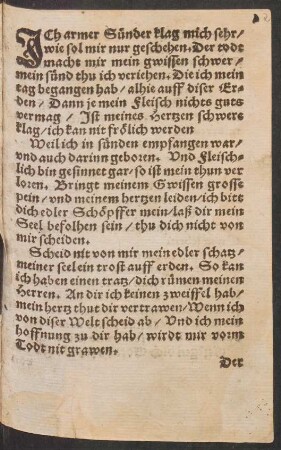 ICh armer Sünder klag mich sehr/
wie sol mir nur geschehen. Der todt
macht mir mein gwissen schwer/
mein sünd thu ich veriehen. Die ich mein
tag begangen hab/ alhie auff diser Er-
den/ Dann je mein Fleisch nichts guts
vermag/ Ist meines Hertzen schwere
klag/ ich kan nit frölich werden
Weil ich in sünden empfangen war/
vnd auch darinn geboren. Vnd Fleisch-
lich bin gesinnet gar/ so ist mein thun ver
loren. Bringt meinem Gwissen grosse
pein/ vnd meinem hertzen leiden/ ich bitt
dich edler Schöpffer mein/ laß dir mein
Seel befolhen sein/ thu dich nicht von
mir scheiden.
Scheid nit von mir mein edler schatz/
meiner seelein trost auff erden. So kan
ich haben einen tratz/ dich rümen meinen
Herren. An dir ich keinen zweiffel hab/
mein hertz thut dir vertrawen/ Wenn ich
von diser Welt scheid ab/ Vnd ich mein
hoffnung zu dir hab/ wirdt mir vorm
Todt nit grawen.
Der